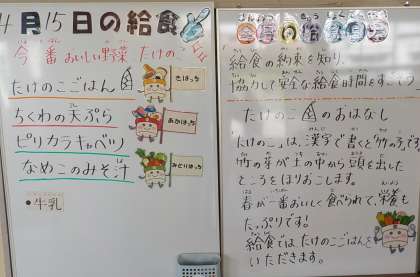 4月15日の給食
今一番おいしい野菜 たけのこ
たけのこごはん
きはっち
ちくわの天ぷら
あかはっち
ピリカラキャベツ
なめこのみそ汁
みどりはっち
•牛乳
給食の約束を知り、
協力して安全な給食時間をすごそう
たけのこのおはなし
「たけのこ」は、漢字で書くと「竹の子」です。
竹の芽が土の中から頭を出した
ところをほりおこします。
春が一番おいしく食べられて、栄養も
たっぷりです!
給食ではたけのこごはんを
いただきます。